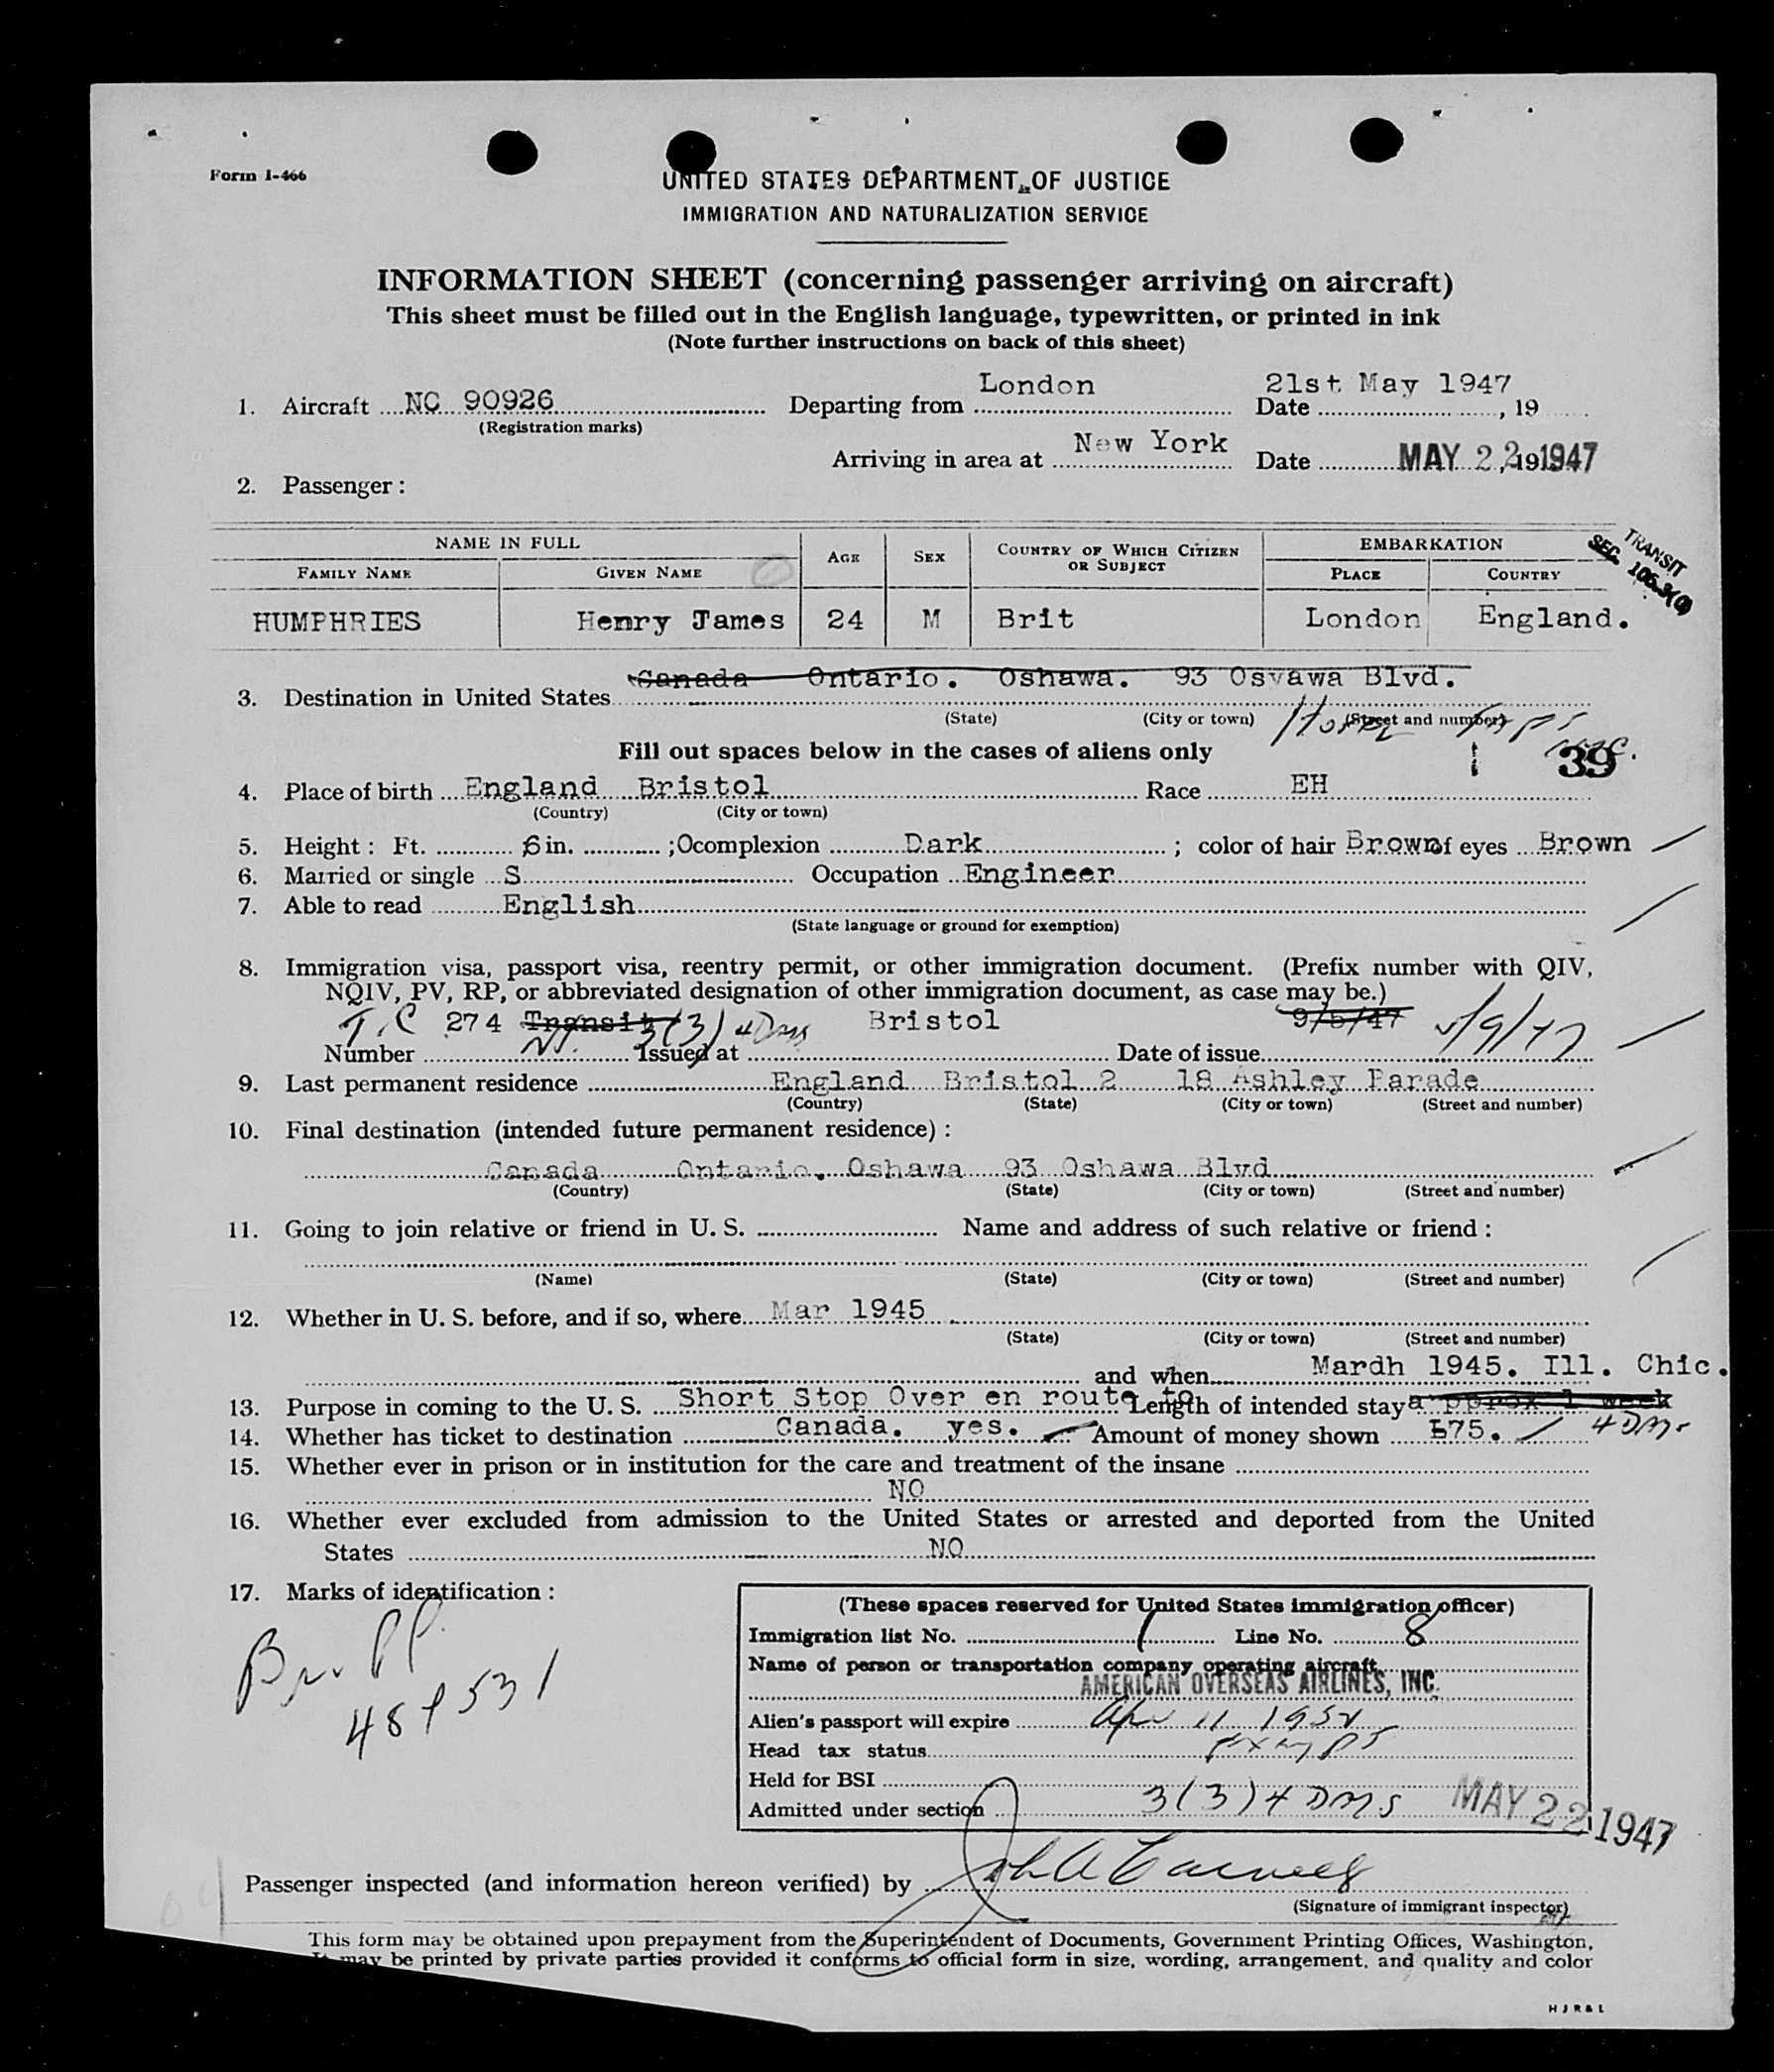 Form I-466
UNITED STATES DEPARTMENT OF JUSTICE
IMMIGRATION AND NATURALIZATION SERVICE
INFORMATION SHEET (concerning passenger arriving on aircraft)
This sheet must be filled out in the English language, typewritten, or printed in ink
(Note further instructions on back of this sheet)
1. Aircraft NC 90926 Departing from London Date 21st May 1947, 19
(Registration marks)
Arriving in area at New York Date MAY 22, 19 1947
2. Passenger:
NAME IN FULL AGE SEX COUNTRY OF WHICH CITIZEN OR SUBJECT EMBARKATION
FAMILY NAME GIVEN NAME PLACE COUNTRY
TRANSIT
SEC. 106.3(
HUMPHRIES Henry James 24 M Brit London England.
Canada Ontario. Oshawa. 93 Osvawa Blvd.
3. Destination in United States
(State) (City or town) (Street and number)
Fill out spaces below in the cases of aliens only
39
4. Place of birth England Bristol Race EH
(Country) (City or town)
5. Height: Ft. 6 in. ; complexion Dark ; color of hair Brown of eyes Brown
6. Married or single S Occupation Engineer
7. Able to read English
(State language or ground for exemption)
8. Immigration visa, passport visa, reentry permit, or other immigration document. (Prefix number with QIV,
NQIV, PV, RP, or abbreviated designation of other immigration document, as case may be.)
274 Transit 3(3) Bristol 9/5/47 5/9/47
Number Issued at Date of issue
9. Last permanent residence England Bristol 2 18 Ashley Parade
(Country) (State) (City or town) (Street and number)
10. Final destination (intended future permanent residence):
Canada Ontario. Oshawa 93 Oshawa Blvd
(Country) (State) (City or town) (Street and number)
11. Going to join relative or friend in U. S. Name and address of such relative or friend:
(Name) (State) (City or town) (Street and number)
12. Whether in U. S. before, and if so, where Mar 1945
(State) (City or town) (Street and number)
and when Mardh 1945. Ill. Chic.
13. Purpose in coming to the U. S. Short Stop Over en route to Length of intended stay approx 1 week
14. Whether has ticket to destination Canada. yes. Amount of money shown £75.
15. Whether ever in prison or in institution for the care and treatment of the insane
NO
16. Whether ever excluded from admission to the United States or arrested and deported from the United
States NO
17. Marks of identification:
(These spaces reserved for United States immigration officer)
Immigration list No. 1 Line No. 8
Name of person or transportation company operating aircraft
AMERICAN OVERSEAS AIRLINES, INC.
Alien's passport will expire Apr 11 1952
Head tax status
Held for BSI
Admitted under section 3(3) 4 MAY 22 1947
Passenger inspected (and information hereon verified) by
(Signature of immigrant inspector)
This form may be obtained upon prepayment from the Superintendent of Documents, Government Printing Offices, Washington,
may be printed by private parties provided it conforms to official form in size, wording, arrangement, and quality and color
H J R & L